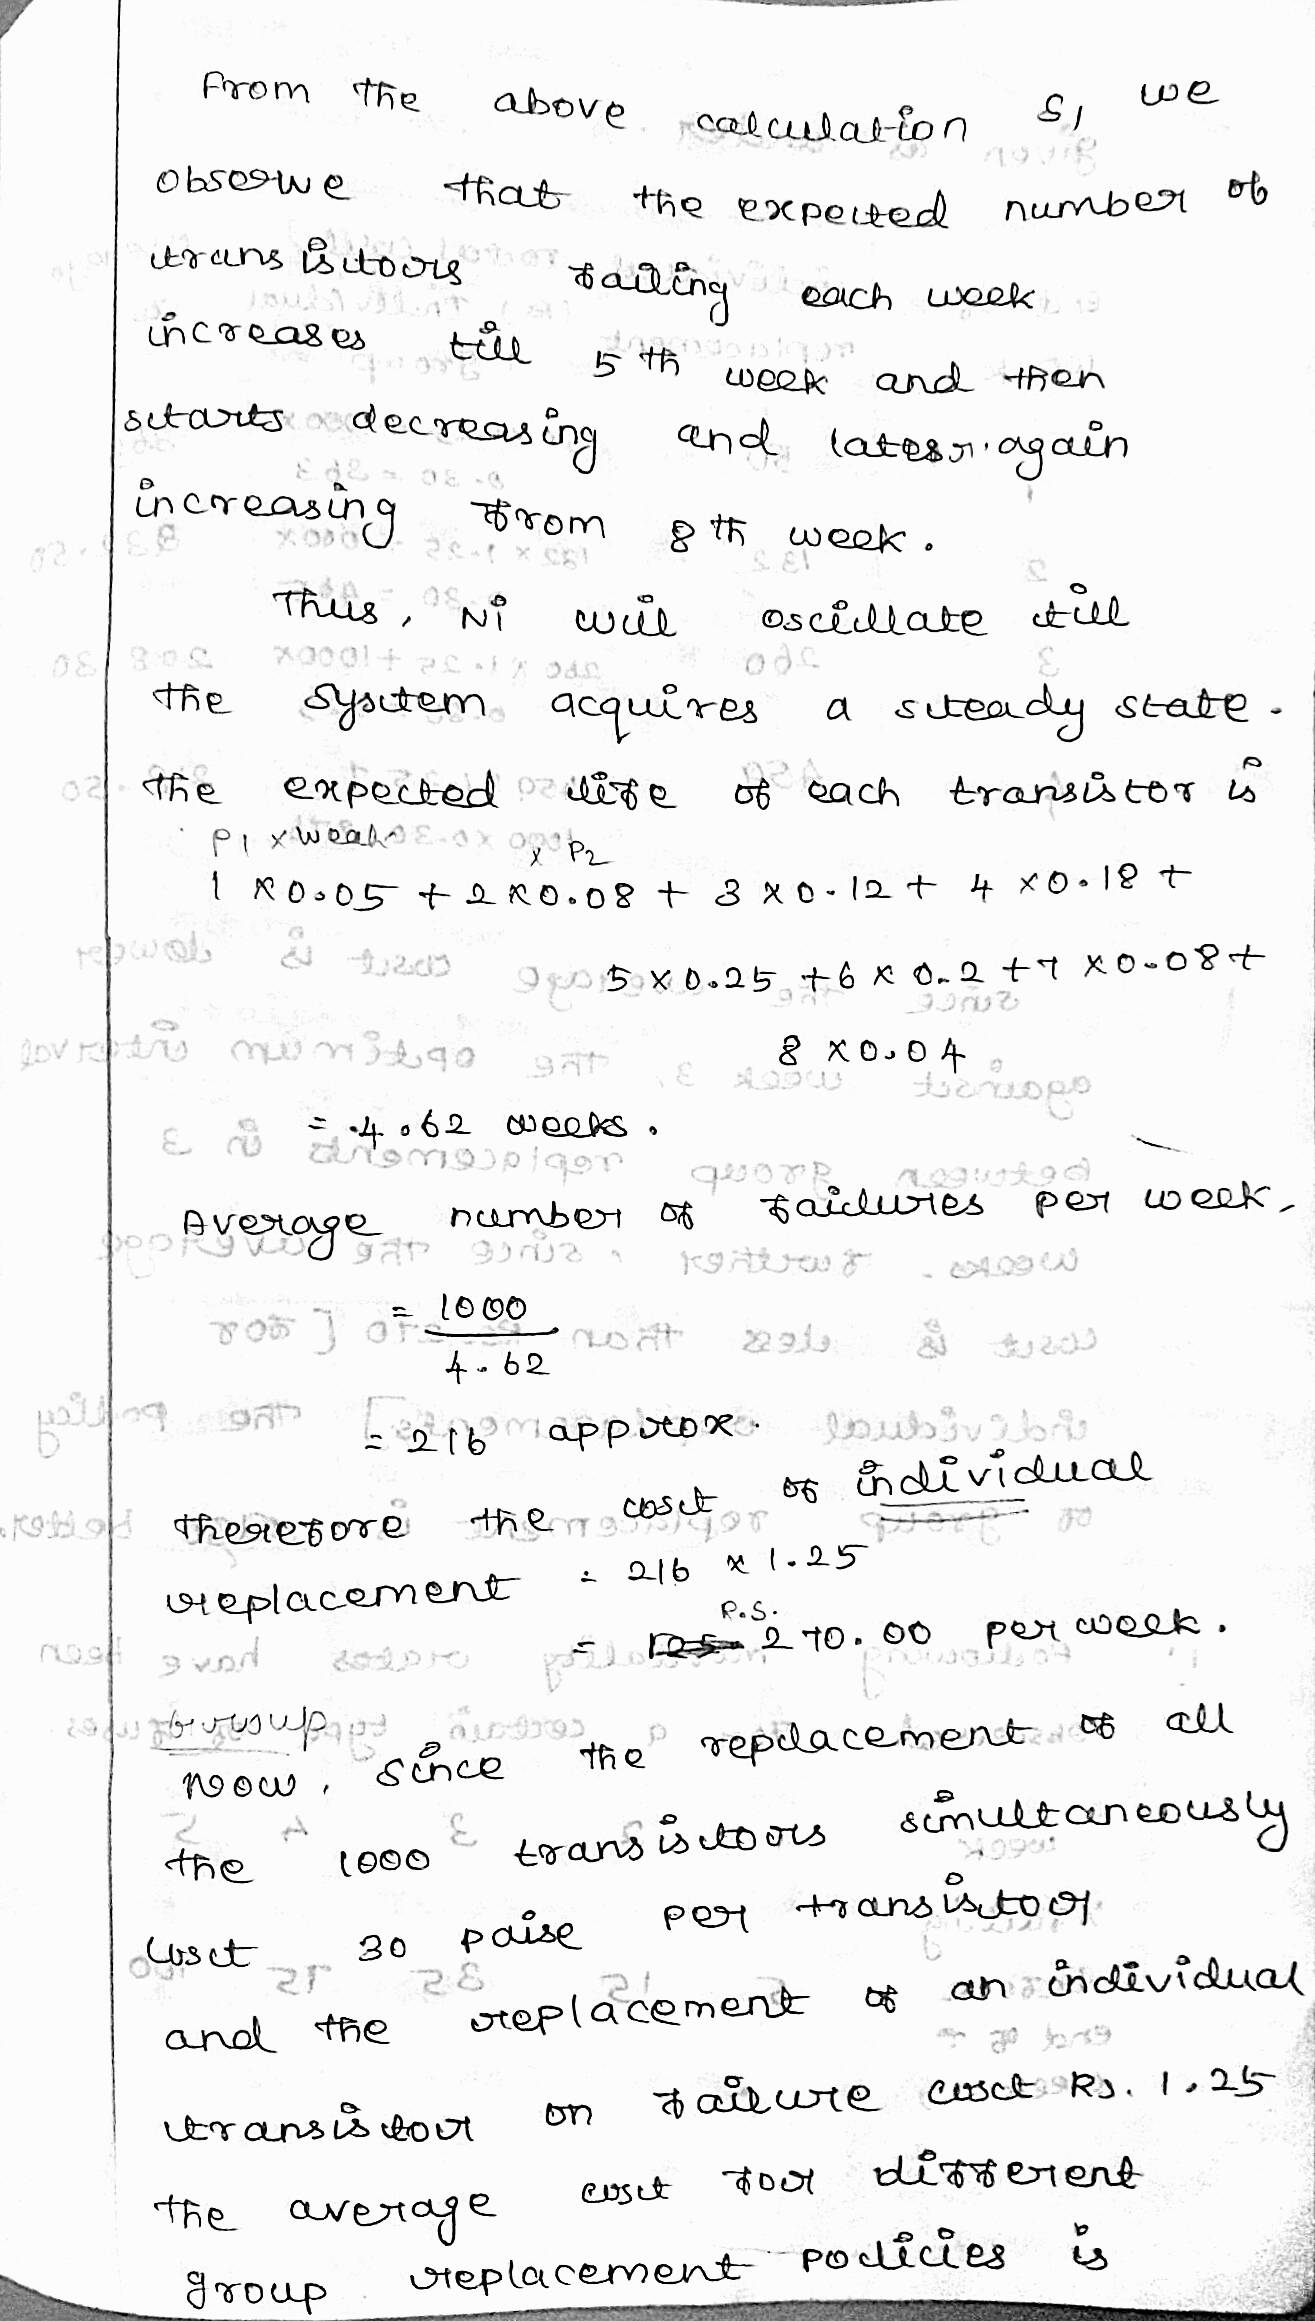 From the above calculation s, we
observe that the expected number of
transistors failing each week
increases till 5th week and then
starts decreasing and later again
increasing from 8th week.
Thus, Ni will oscillate till
the system acquires a steady state.
the expected life of each transistor is
P1 x Week x P2
1 x 0.05 + 2 x 0.08 + 3 x 0.12 + 4 x 0.18 +
5 x 0.25 + 6 x 0.2 + 7 x 0.08 +
8 x 0.04
= 4.62 weeks.
Average number of failures per week,
= 1000
4.62
= 216 approx.
therefore the cost of individual
replacement = 216 x 1.25
R.S.
= 270.00 per week.
Group
Now, since the replacement of all
the 1000 transistors simultaneously
cost 30 paise per transistor
and the replacement of an individual
transistor on failure cost Rs. 1.25
the average cost for different
group replacement policies is